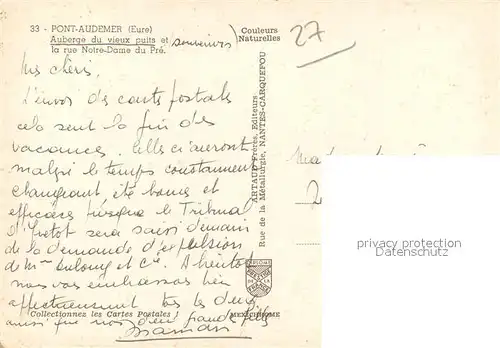 33 - PONT-AUDEMER (Eure)
Auberge du vieux puits et (souvenirs)
la rue Notre-Dame du Pré.
Couleurs
Naturelles
27
Mes chéris,
L'envoi des cartes postales
cela sent la fin des
vacances. Elles ci auront
malgré le temps constamment
changeant été bonnes et
efficaces puisque le Tribunal
d'Yvetot sera saisi demain
de la demande d'expulsion
de Mme et Cie. A bientôt
nous vous embrassons bien
affectueusement tous les deux
ainsi que nos deux grands fils
Maman
Collectionnez les Cartes Postales !
MEXICHROME
ARTAUD Frères, Editeurs
Rue de la Métallurgie, NANTES-CARQUEFOU
privacy protection
Datenschutz